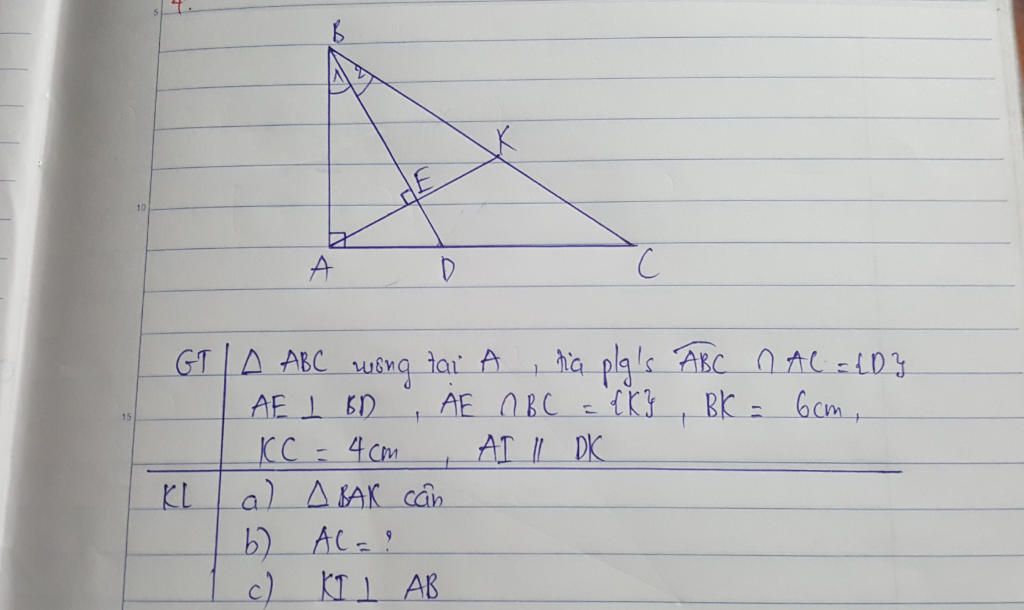 4.
B
1 2
K
E
A D C
GT Δ ABC vuông tại A , tia p/g's ABC ∩ AC = {D}
AE ⊥ BD , AE ∩ BC = {K} , BK = 6cm,
KC = 4cm , AI // DK
KL a) Δ BAK cân
b) AC = ?
c) KI ⊥ AB
5
10
15